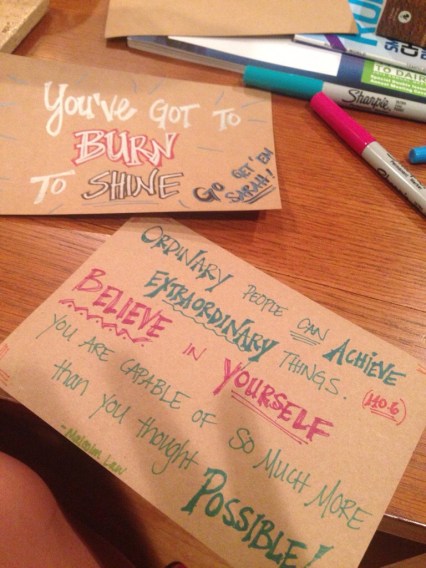 You've GOT TO
BURN
TO SHINE
GO GET 'EM
SARAH!
ORDINARY PEOPLE CAN ACHIEVE
EXTRAORDINARY THINGS. (140.6)
BELIEVE IN YOURSELF
YOU ARE CAPABLE OF SO MUCH MORE
than you thought POSSIBLE!
Sharpie
TO DAIR